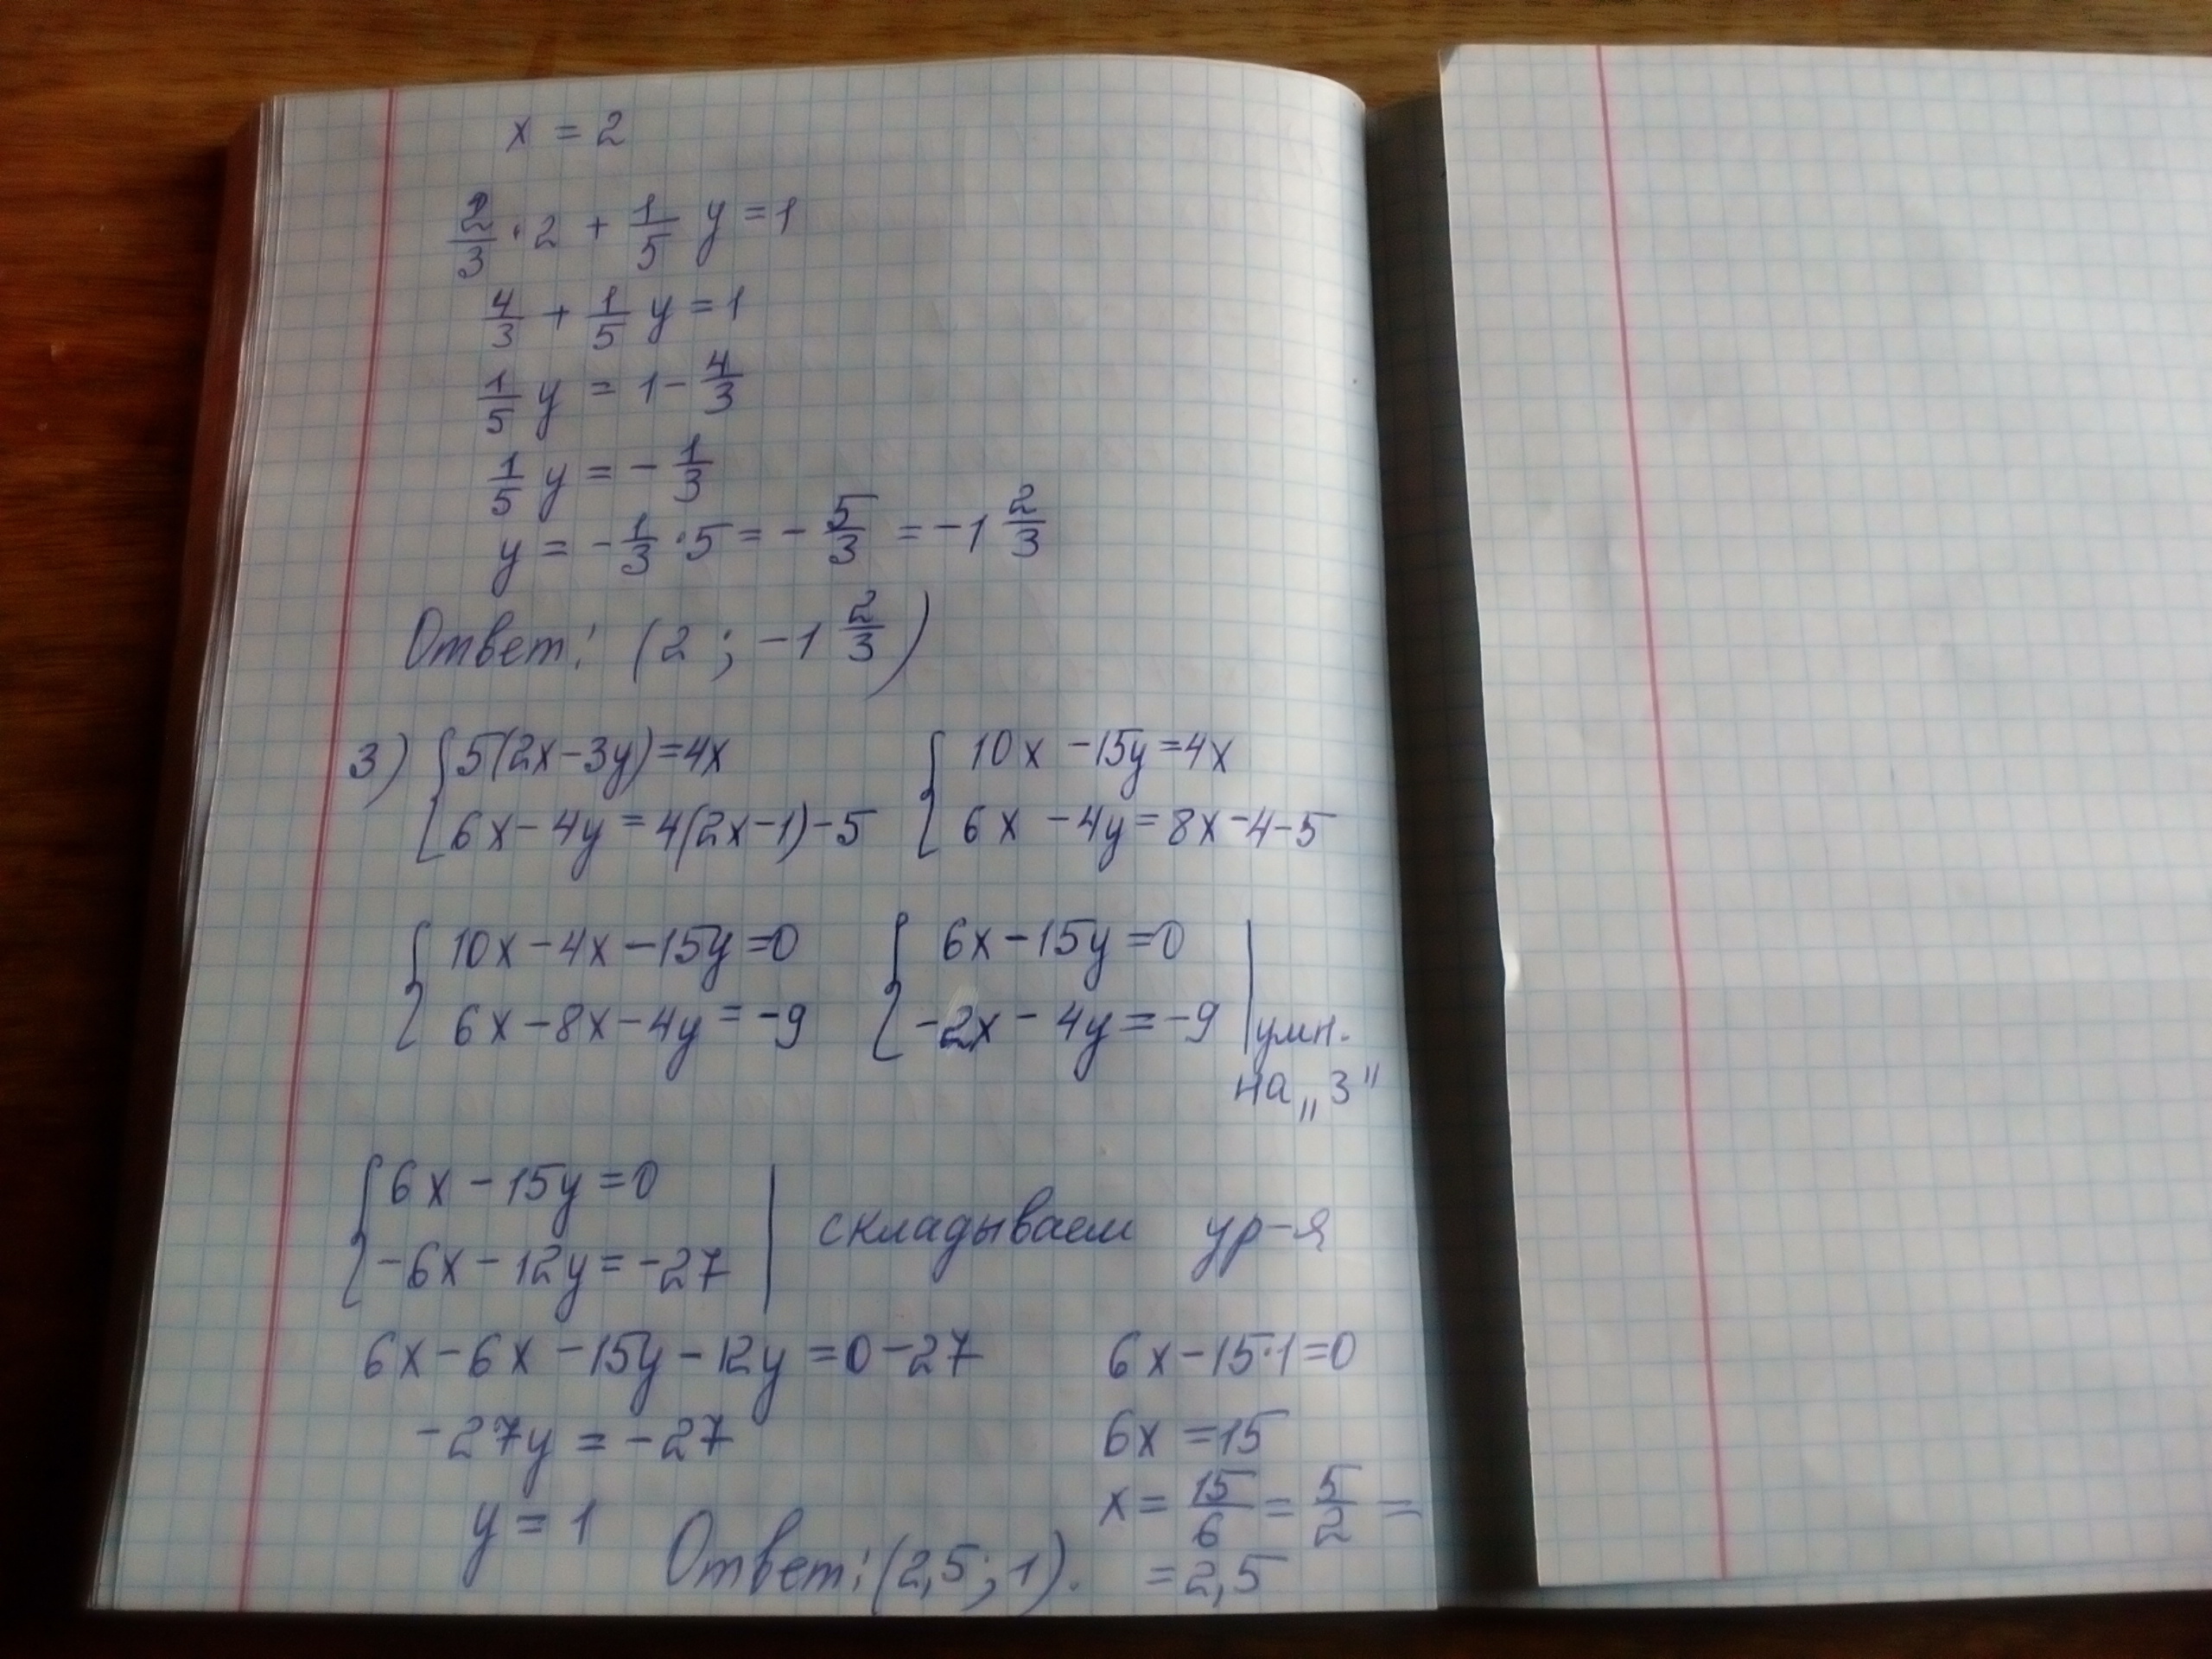 x = 2
2/3 · 2 + 1/5 y = 1
4/3 + 1/5 y = 1
1/5 y = 1 - 4/3
1/5 y = - 1/3
y = - 1/3 · 5 = - 5/3 = -1 2/3
Ответ: (2 ; -1 2/3)
3) { 5(2x-3y)=4x
6x-4y=4(2x-1)-5
{ 10x -15y=4x
6x -4y=8x-4-5
{ 10x-4x-15y=0
6x-8x-4y=-9
{ 6x-15y=0
-2x-4y=-9 | умн.
на „3"
{ 6x-15y=0
-6x-12y=-27 | складываем ур-я
6x-6x-15y-12y=0-27
-27y=-27
y=1
6x-15·1=0
6x=15
x= 15/6 = 5/2 =
=2,5
Ответ: (2,5 ; 1).